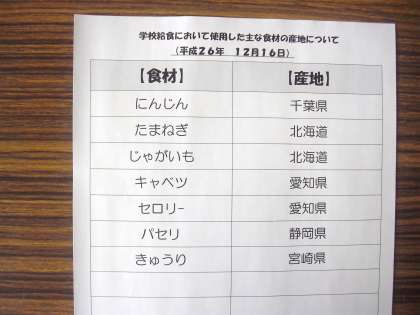 学校給食において使用した主な食材の産地について
（平成２６年　１２月１６日）
【食材】　【産地】
にんじん　千葉県
たまねぎ　北海道
じゃがいも　北海道
キャベツ　愛知県
セロリー　愛知県
パセリ　静岡県
きゅうり　宮崎県